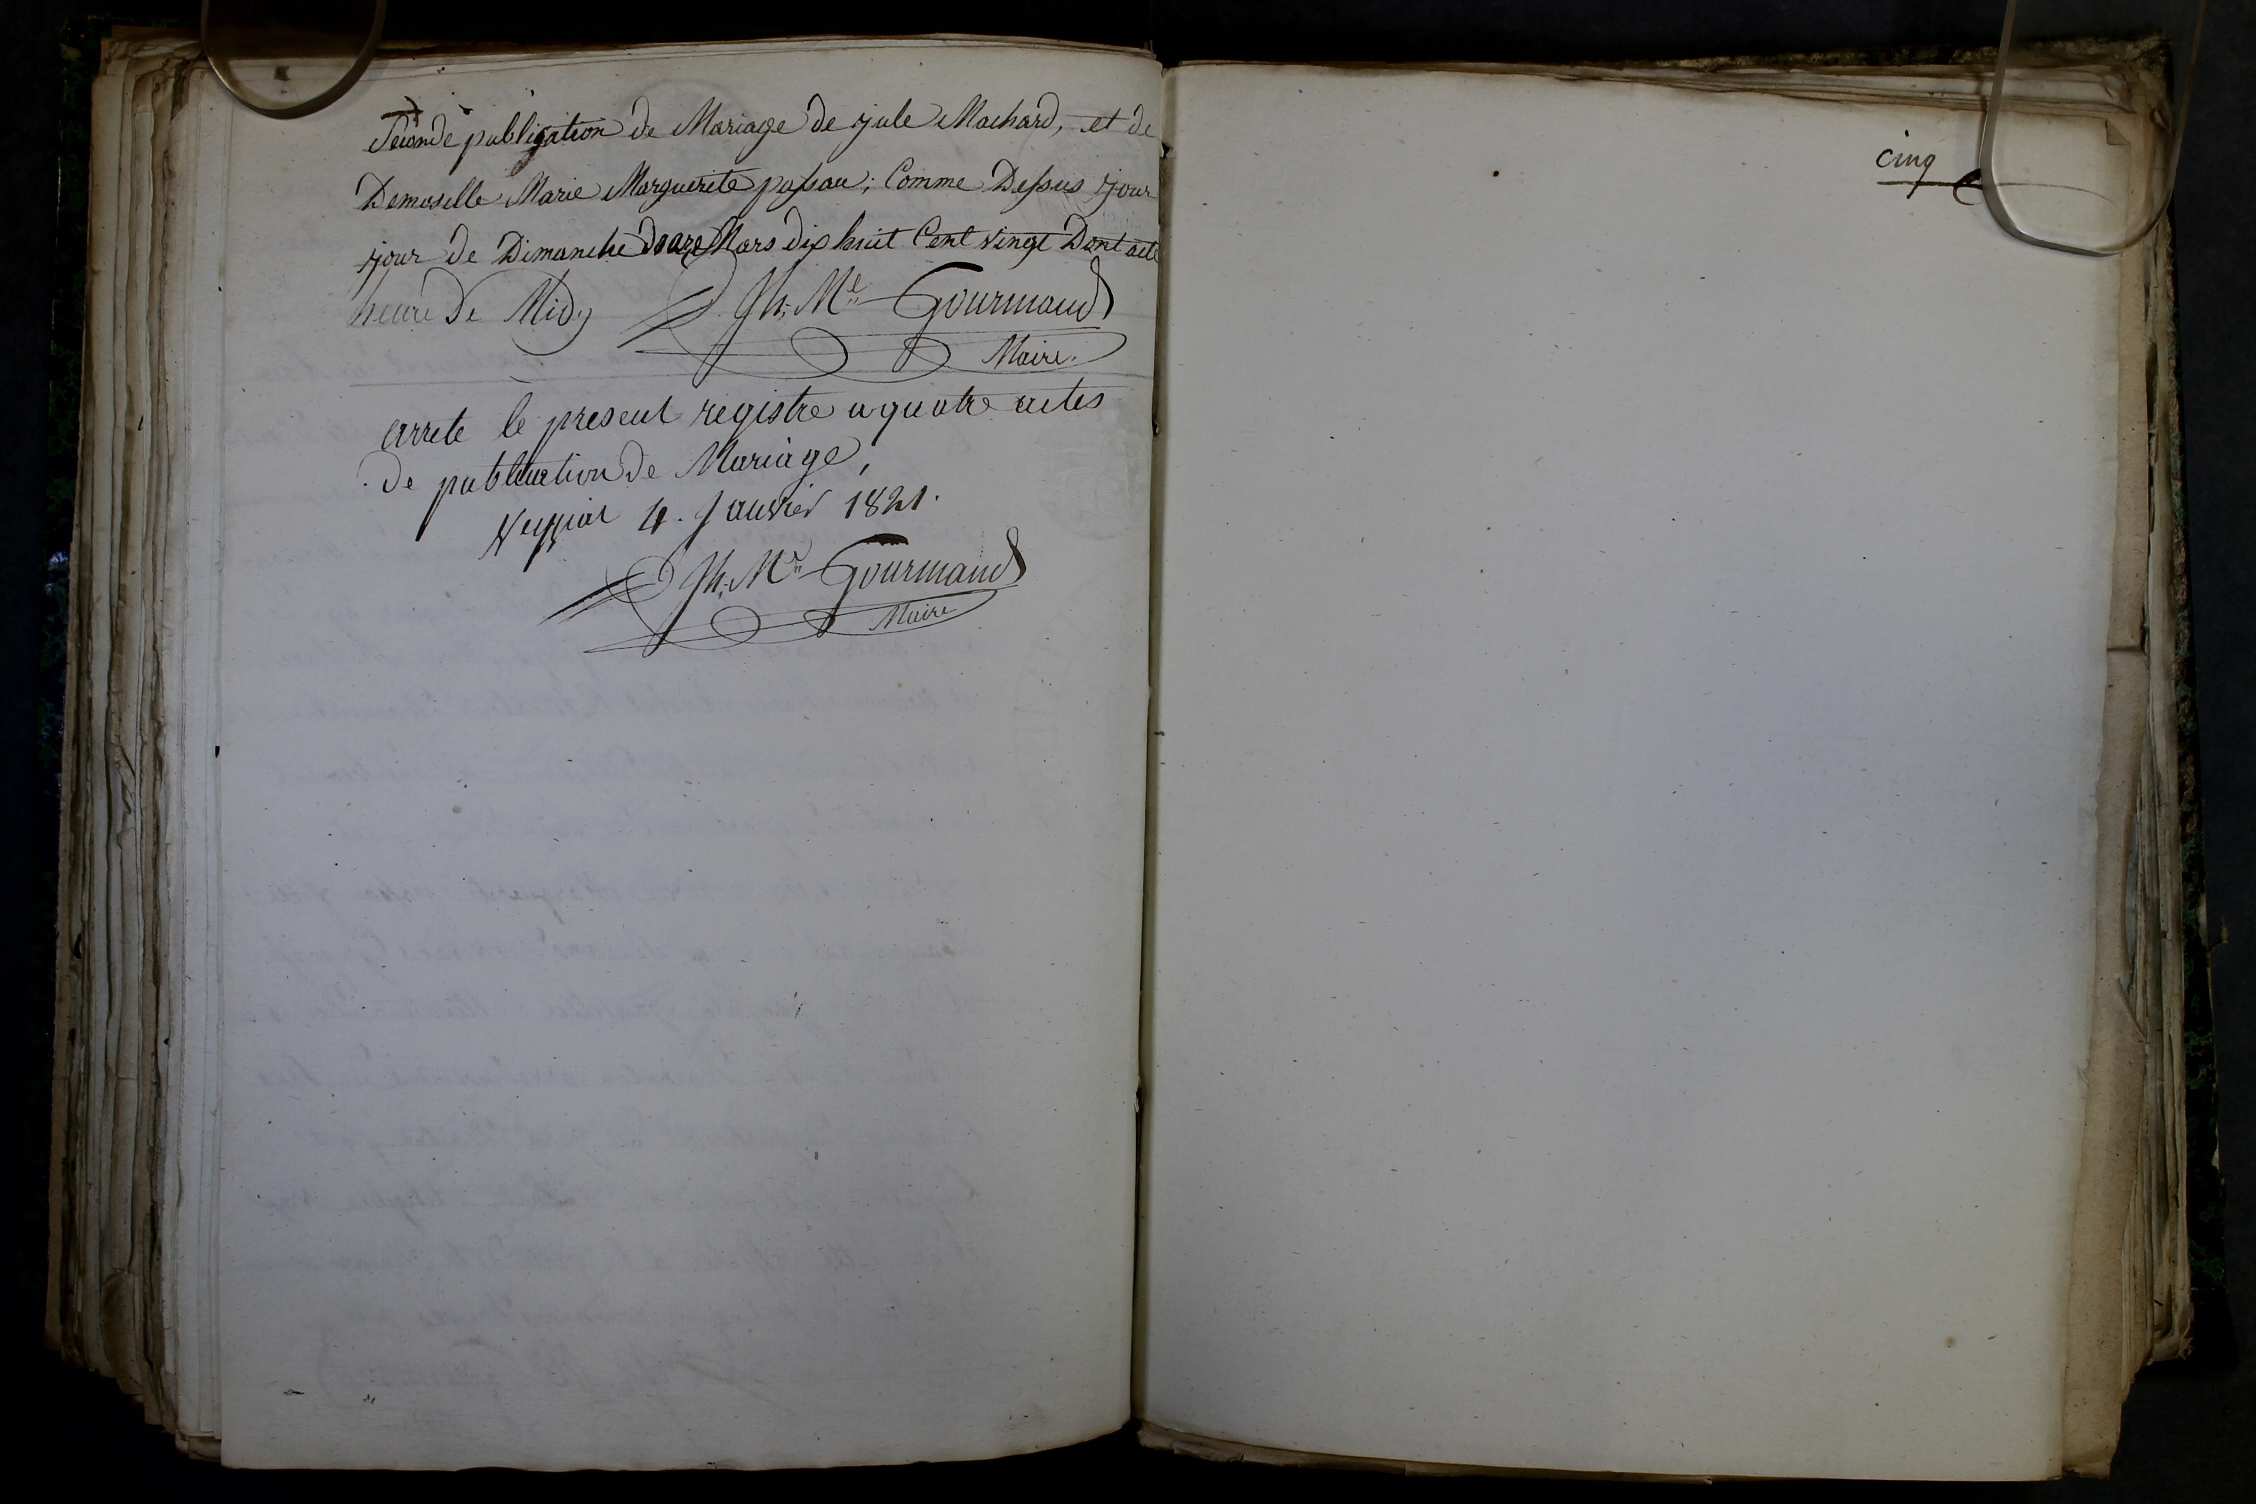 Seconde publication de Mariage de jule Machard, et de
Demoselle Marie Marguerite passau; Comme Dessus jour
jour de Dimanche douze Mars dix huit Cent vingt Dont acte
heure de Midy Jh. Me. Gourmand
Maire.
arrete le present registre a quatre actes
de publication de Mariage,
4. Janvier 1821.
Jh. Me. Gourmand
Maire
cinq